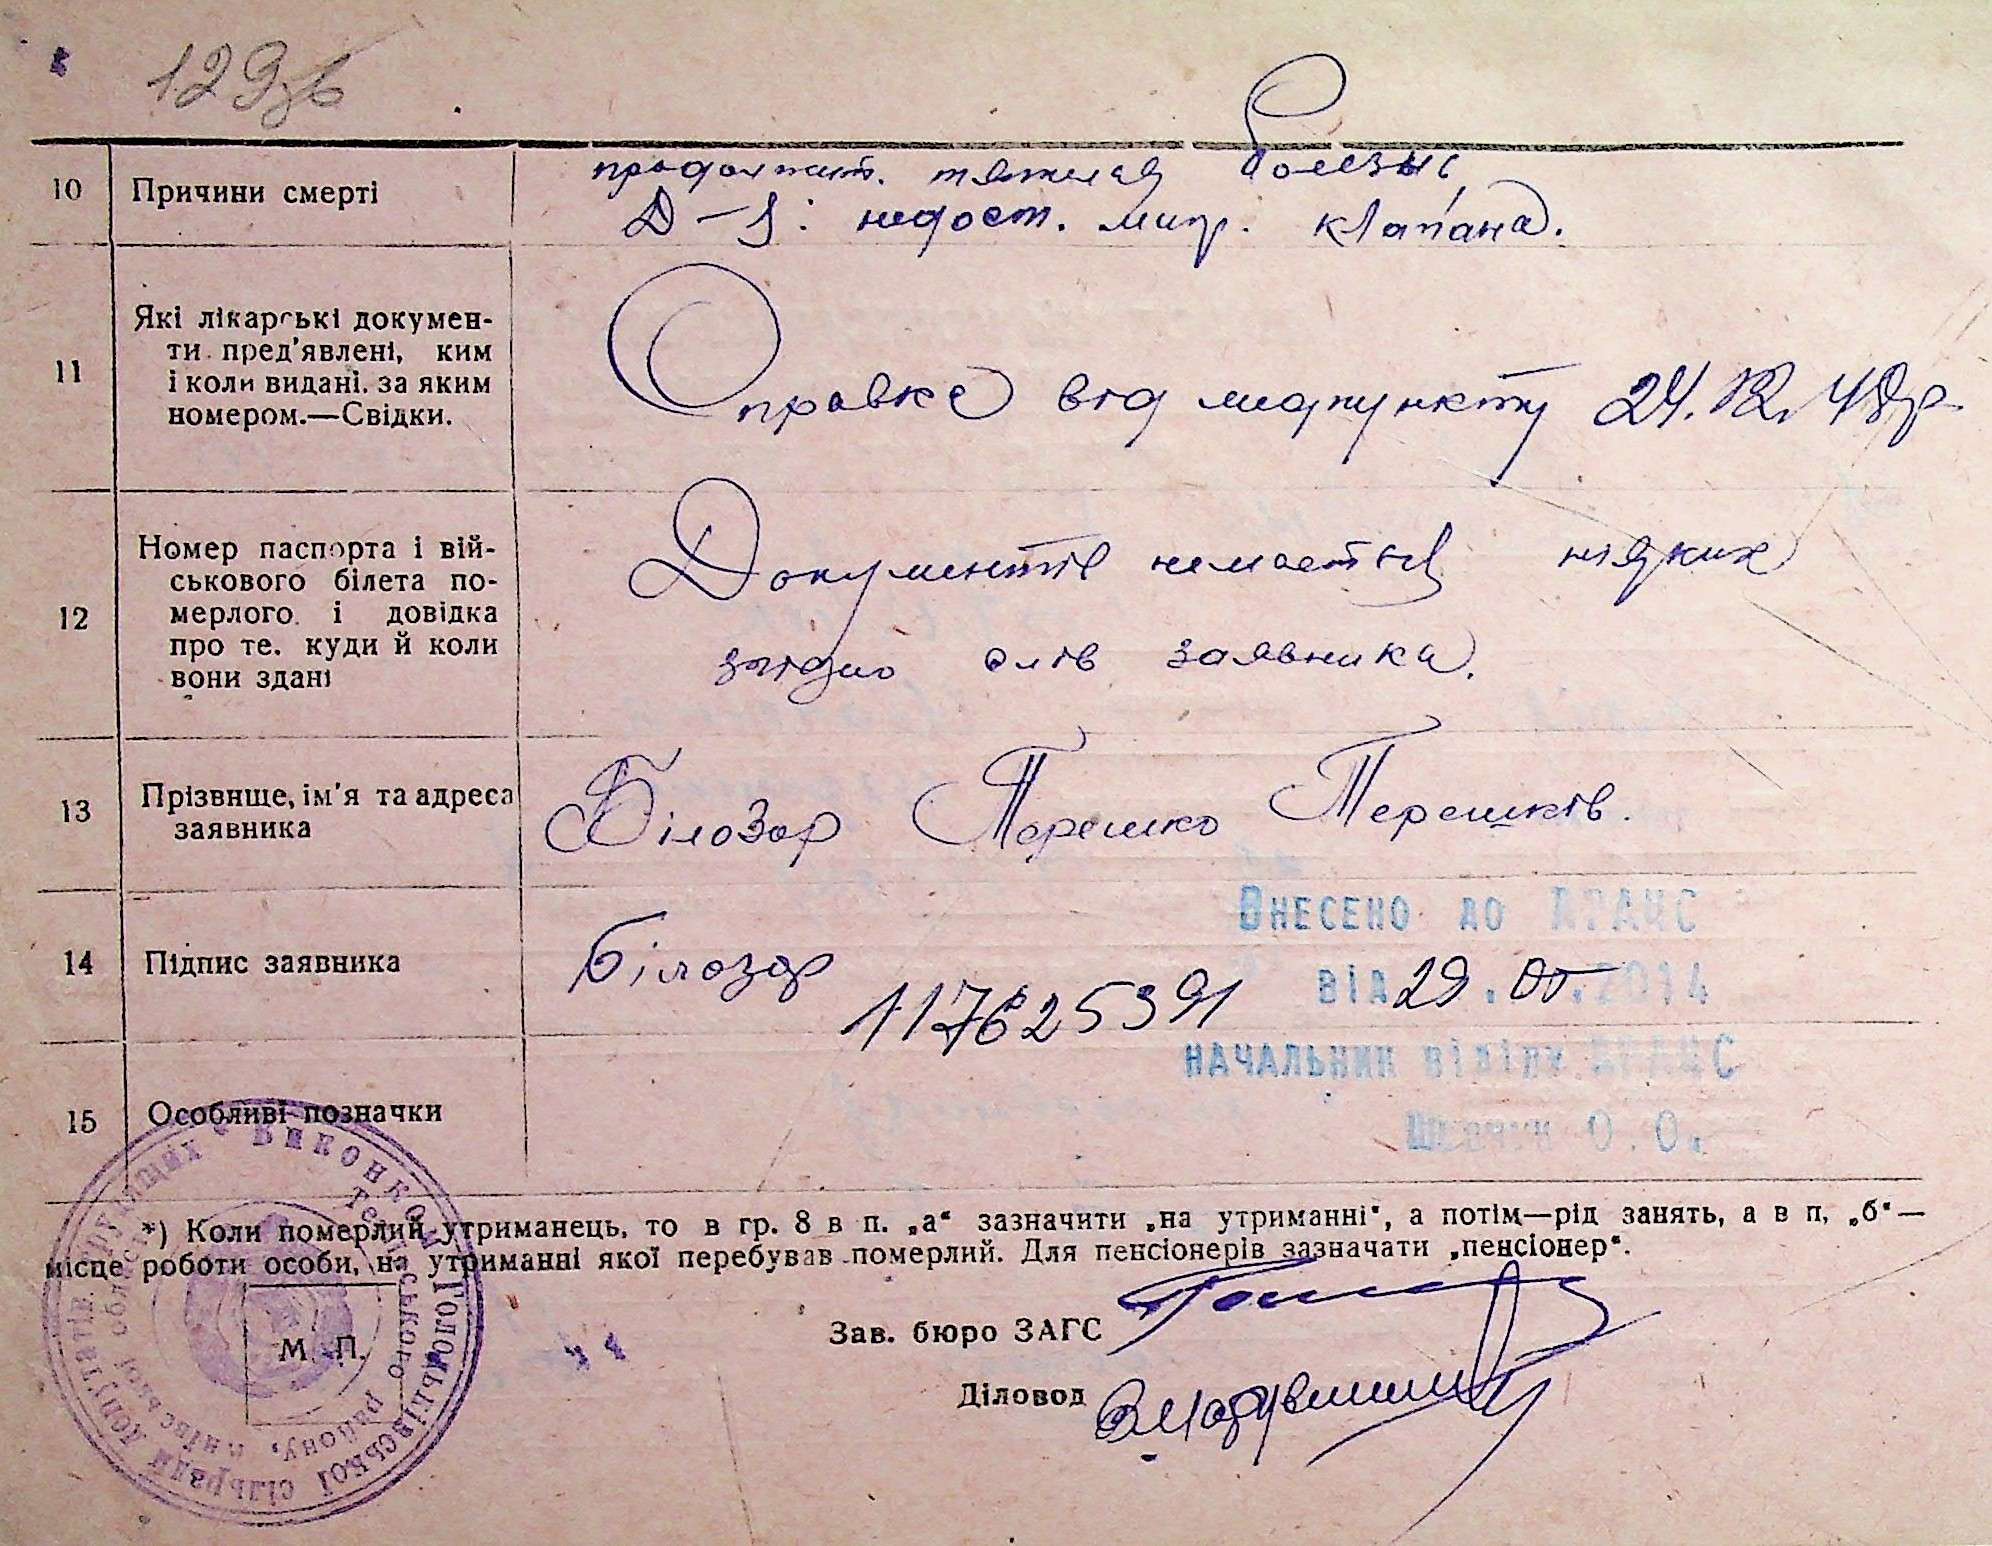 129зв
10 Причини смерті
продолжит. тяжелая болезнь
Д-з: недост. митр. клапана.
11 Які лікарські докумен-
ти пред'явлені, ким
і коли видані, за яким
номером.—Свідки.
Справка від медпункту 24.12.48р
12 Номер паспорта і вій-
ськового білета по-
мерлого і довідка
про те, куди й коли
вони здані
Документів немаеться ніяких
згідно слів заявника.
13 Прізвище, ім'я та адреса
заявника
Білозор Терешко Терешків.
14 Підпис заявника
Білозор
117625391
Внесено до ДРАЦС
від 29. 2014
начальник відділу ДРАЦС
О.О.
15 Особливі позначки
*) Коли померлий утриманець, то в гр. 8 в п. „а“ зазначити „на утриманні“, а потім—рід занять, а в п, „б“—
місце роботи особи, на утриманні якої перебував померлий. Для пенсіонерів зазначати „пенсіонер“.
М. П.
Виконком Голоськівської сільради депутатів трудящих
району, області
Зав. бюро ЗАГС
Діловод